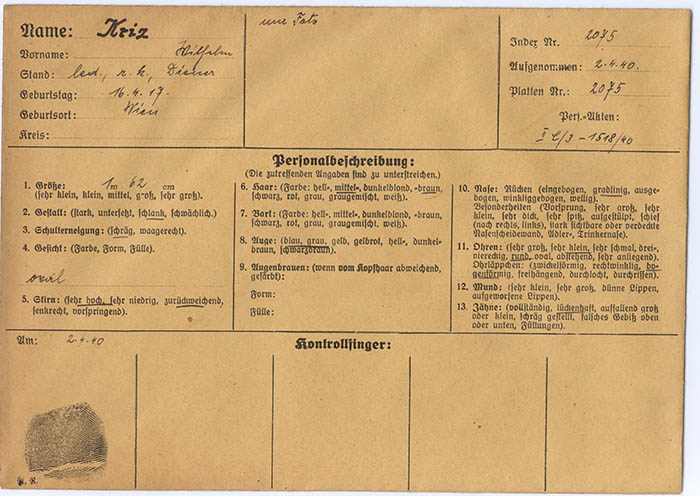 Name: Kriz
Vorname: Wilhelm
Stand: led., r. k., Diener
Geburtstag: 16.4.17.
Geburtsort: Wien
Kreis:
nur Foto
Index Nr. 2075
Aufgenommen: 2.4.40.
Platten Nr.: 2075
Pers.-Akten:
1518/40
Personalbeschreibung:
(Die zutreffenden Angaben sind zu unterstreichen.)
1. Größe: 1 m 62 cm
(sehr klein, klein, mittel, groß, sehr groß).
2. Gestalt: (stark, untersetzt, schlank, schwächlich.)
3. Schulterneigung: (schräg, waagerecht).
4. Gesicht: (Farbe, Form, Fülle).
oval
5. Stirn: (sehr hoch, sehr niedrig, zurückweichend,
senkrecht, vorspringend).
6. Haar: (Farbe: hell-, mittel-, dunkelblond, -braun,
schwarz, rot, grau, graugemischt, weiß).
7. Bart: (Farbe: hell-, mittel-, dunkelblond, -braun,
schwarz, rot, grau, graugemischt, weiß).
8. Auge: (blau, grau, gelb, gelbrot, hell-, dunkel-
braun, schwarzbraun).
9. Augenbrauen: (wenn vom Kopfhaar abweichend,
gefärbt):
Form:
Fülle:
10. Nase: Rücken (eingebogen, gradlinig, ausge-
bogen, winkliggebogen, wellig).
Besonderheiten (Vorsprung, sehr groß, sehr
klein, sehr dick, sehr spitz, aufgestülpt, schief
(nach rechts, links), stark sichtbare oder verdeckte
Nasenscheidewand, Adler-, Trinkernase).
11. Ohren: (sehr groß, sehr klein, sehr schmal, drei-,
viereckig, rund, oval, abstehend, sehr anliegend).
Ohrläppchen: (zwickelförmig, rechtwinklig, bo-
genförmig, freihängend, durchlocht, durchrissen).
12. Mund: (sehr klein, sehr groß, dünne Lippen,
aufgeworfene Lippen).
13. Zähne: (vollständig, lückenhaft, auffallend groß
oder klein, schräg gestellt, falsches Gebiß oben
oder unten, Füllungen).
Am: 2.4.40
Kontrollfinger: